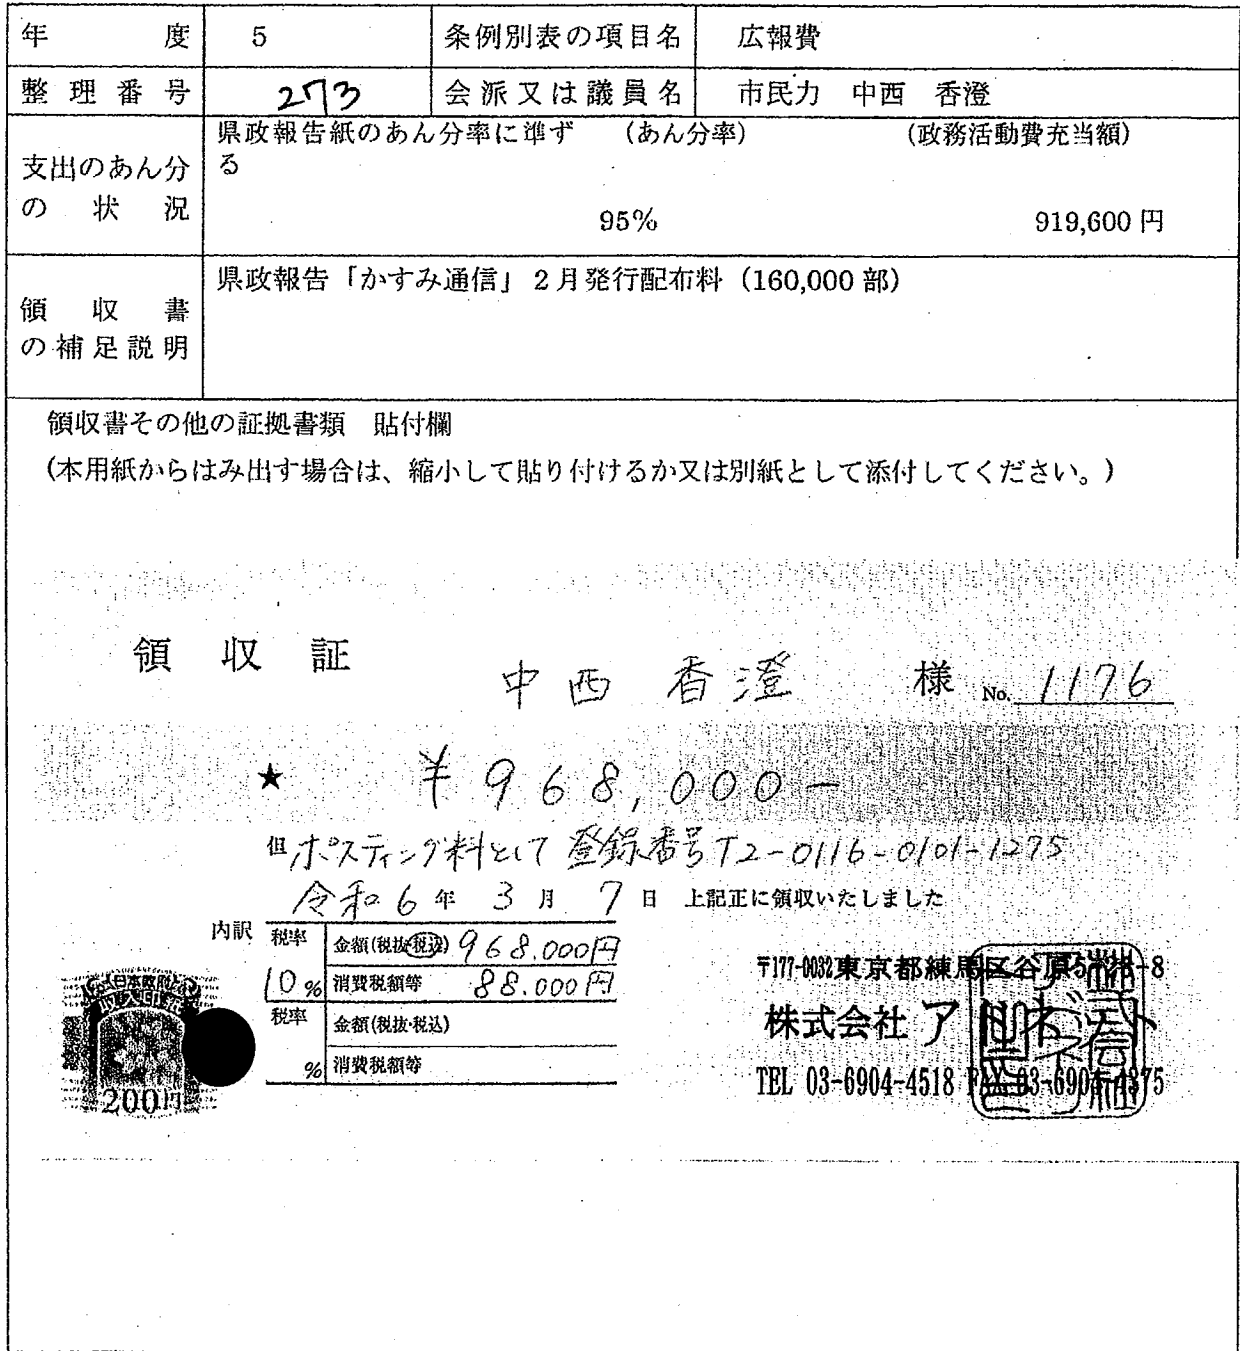 年度 5 条例別表の項目名 広報費
整理番号 273 会派又は議員名 市民力 中西 香澄
支出のあん分の状況
県政報告紙のあん分率に準ずる (あん分率) (政務活動費充当額)
95% 919,600 円
領収書の補足説明
県政報告「かすみ通信」2月発行配布料(160,000 部)
領収書その他の証拠書類 貼付欄
(本用紙からはみ出す場合は、縮小して貼り付けるか又は別紙として添付してください。)
領収証
中西 香澄 様 No. 1176
★ ¥968,000-
但 ポスティング料として 登録番号T2-0116-0101-1275
令和6年3月7日 上記正に領収いたしました
内訳 税率 金額(税抜・税込) 968.000円
10% 消費税額等 88.000円
税率 金額(税抜・税込)
% 消費税額等
〒177-0032 東京都練馬区谷原
株式会社
TEL 03-6904-4518 FAX 03-6904-4375
200円